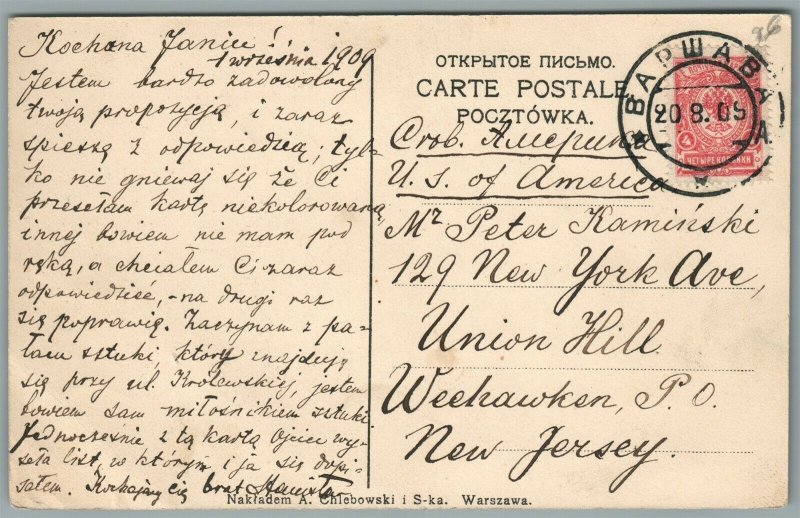 Kochana Janiu!
1 września 1909
Jestem bardzo zadowolony
twoją propozycją, i zaraz
spieszę z odpowiedzią; tyl-
ko nie gniewaj się że Ci
przesełam kartę niekolorowaną
innej bowiem nie mam pod
ręką, a chciałem Ci zaraz
odpowiedzieć, - na drugi raz
się poprawię. Zaczynam z pa-
łacu sztuki, który znajduję
się przy ul. Królewskiej, jestem
bowiem sam miłośnikiem sztuki.
Jednocześnie z tą kartą Ojciec wy-
seła list, w którym i ja się dopi-
sałem. Kochający cię brat Stanisław
ОТКРЫТОЕ ПИСЬМО.
CARTE POSTALE
POCZTÓWKA.
Сѣв. Америка
U. S. of America
Mr Peter Kamiński
129 New York Ave,
Union Hill
Weehawken, P. O.
New Jersey.
ВАРШАВА
20 8. 09
4
ЧЕТЫРЕ КОПѢЙКИ
Nakładem A. Chlebowski i S-ka. Warszawa.